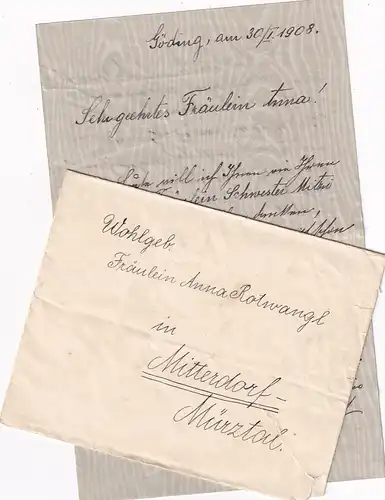 Göding, am 30/I. 1908.
Sehr geehrtes Fräulein Anna!
Heute will ich Ihnen wie Ihrem
Fräulein Schwester Mitzi
danken,
Wohlgeb.
Fräulein Anna Rotwangl
in
Mitterdorf-
Mürztal.